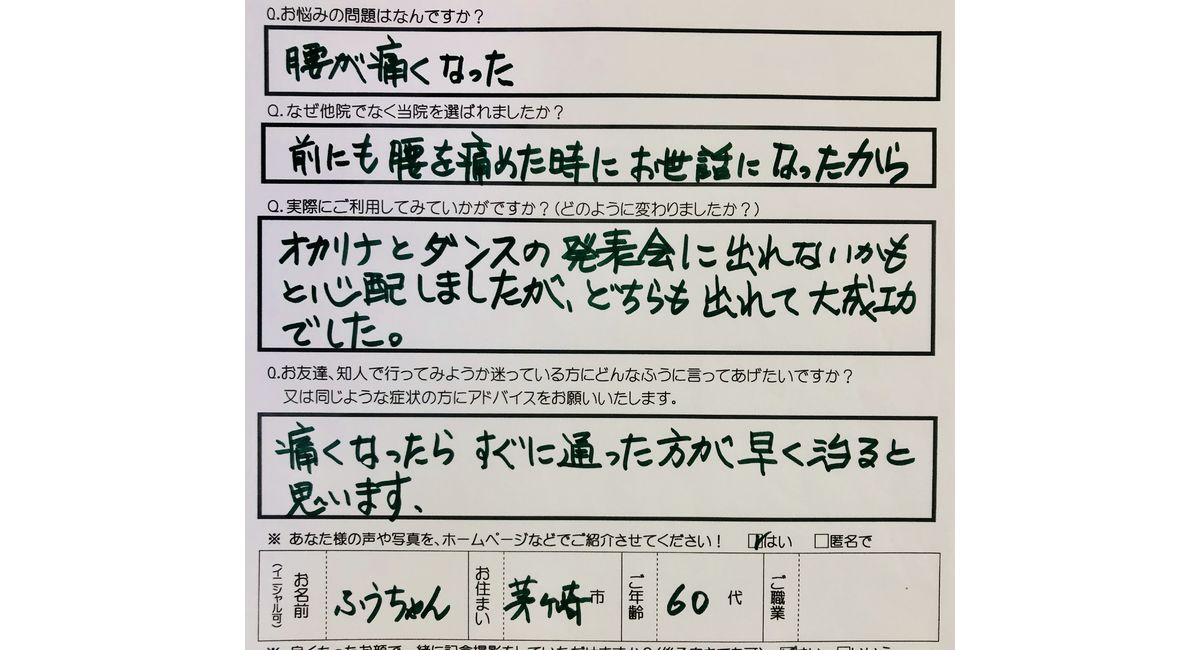 Q.お悩みの問題はなんですか？
腰が痛くなった
Q.なぜ他院でなく当院を選ばれましたか？
前にも腰を痛めた時にお世話になったから
Q.実際にご利用してみていかがですか？(どのように変わりましたか？)
オカリナとダンスの発表会に出れないかも
と心配しましたが、どちらも出れて大成功
でした。
Q.お友達、知人で行ってみようか迷っている方にどんなふうに言ってあげたいですか？
又は同じような症状の方にアドバイスをお願いいたします。
痛くなったらすぐに通った方が早く治ると
思います、
※ あなた様の声や写真を、ホームページなどでご紹介させてください！ はい 匿名で
お名前 (イニシャル可) ふうちゃん お住まい 茅ヶ崎市 ご年齢 60代 ご職業